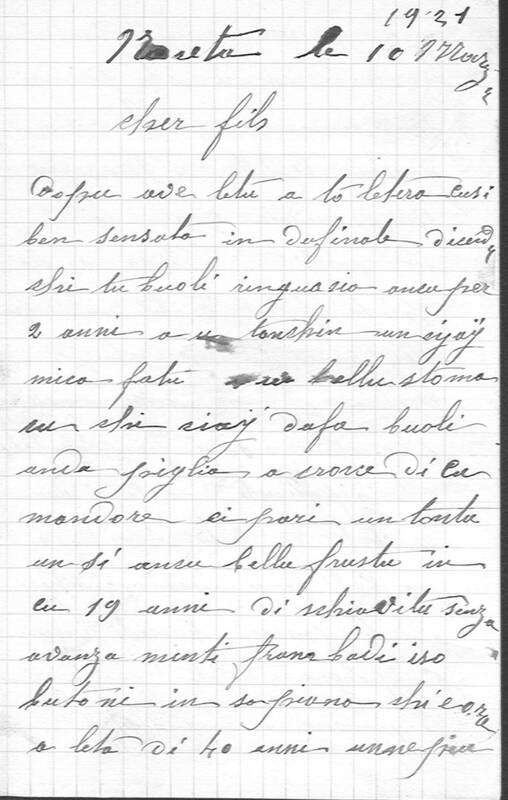 1921
le 10 Marzu
cher fils
Dopu ave letu a tó letera cusi
ben sensata in dafinale dicendu
chi tu buoli ringuasia ancu per
2 anni a u tonchin un ci ăÿ
mica fatu bellu stoma
cu chi ciaÿ dafa buoli
anda piglia a croce di cu
mandore ci pari un tontu
un si ancu bellu frustu in
cu 19 anni di schiavitu senza
avanza menti franc badi iso
butoni in sapranu chi e ora
a letà di 40 anni unne piu